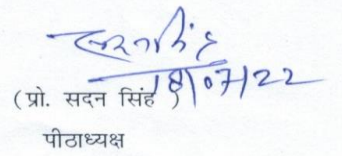 18/07/22
(प्रो. सदन सिंह )
पीठाध्यक्ष